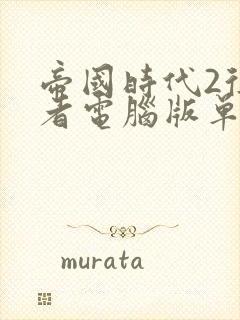 帝國時代2
者電腦版單
murata